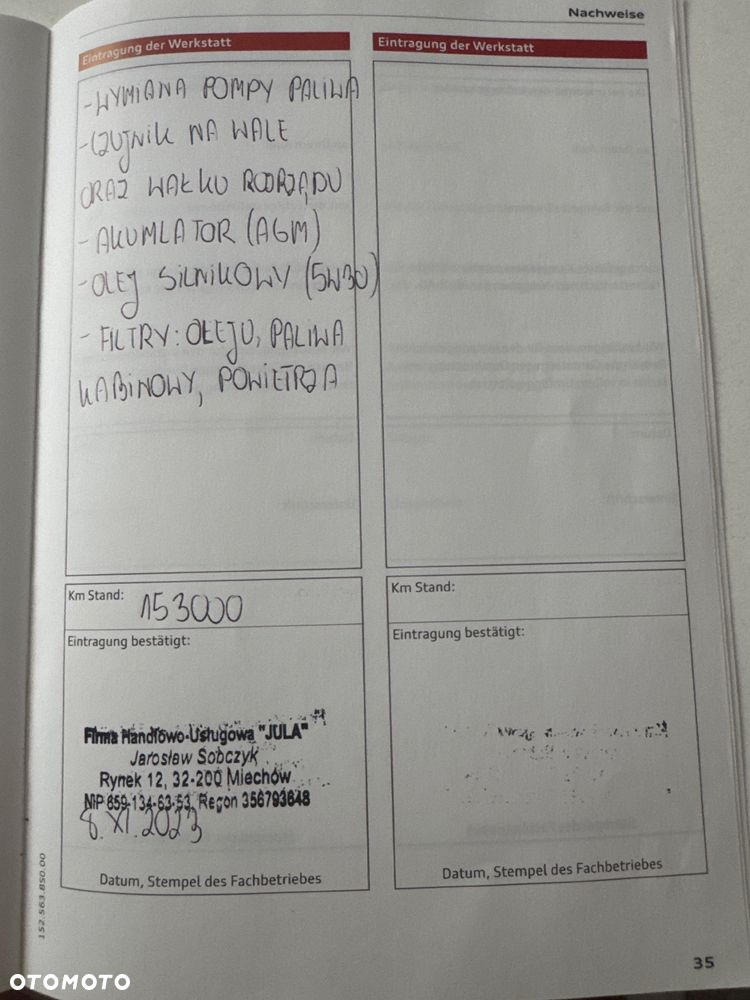 Nachweise
Eintragung der Werkstatt
- WYMIANA POMPY PALIWA
- CZUJNIK NA WALE
ORAZ WAŁKU ROZRZĄDU
- AKUMLATOR (AGM)
- OLEJ SILNIKOWY (5W30)
- FILTRY: OLEJU, PALIWA
KABINOWY, POWIETRZA
Km Stand: 153000
Eintragung bestätigt:
Firma Handlowo-Usługowa "JULA"
Jarosław Sobczyk
Rynek 12, 32-200 Miechów
NIP 659-134-63-53, Regon 356793648
8.XI.2023
Datum, Stempel des Fachbetriebes
Eintragung der Werkstatt
Km Stand:
Eintragung bestätigt:
Datum, Stempel des Fachbetriebes
152.563.850.00
35
OTOMOTO